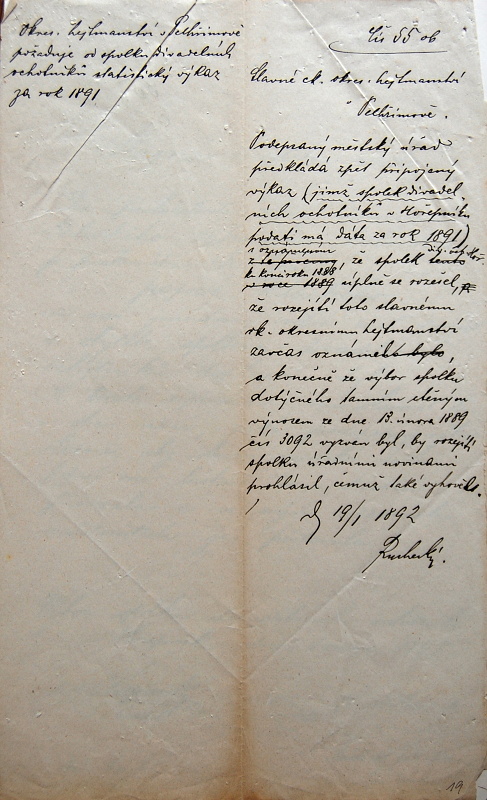 Okres. hejtmanství v Pelhřimově
požaduje od spolku divadelních
ochotníků statistický výkaz
za rok 1891
Čís 55 ob
Slavné ck. okres. hejtmanství
v Pelhřimově.
Podepsaný městský úřad
předkládá zpět připojený
výkaz (jímž spolek divadel
ních ochotníků v Hořepníku
podati má dáta za rok 1891)
s
z, že spolek tento
ke konci roku 1888
v roce 1889 úplně se rozešel,
že rozejití toto slavnému
ck. okresnímu hejtmanství
zavčas oznámeno bylo,
a konečně že výbor spolku
dotyčného tamním ctěným
výnosem ze dne 13. února 1889
čís 3092 vyzván byl, by rozejití
spolku úředními novinami
prohlásil, čemuž také vyhověl.
D 19/1 1892
19